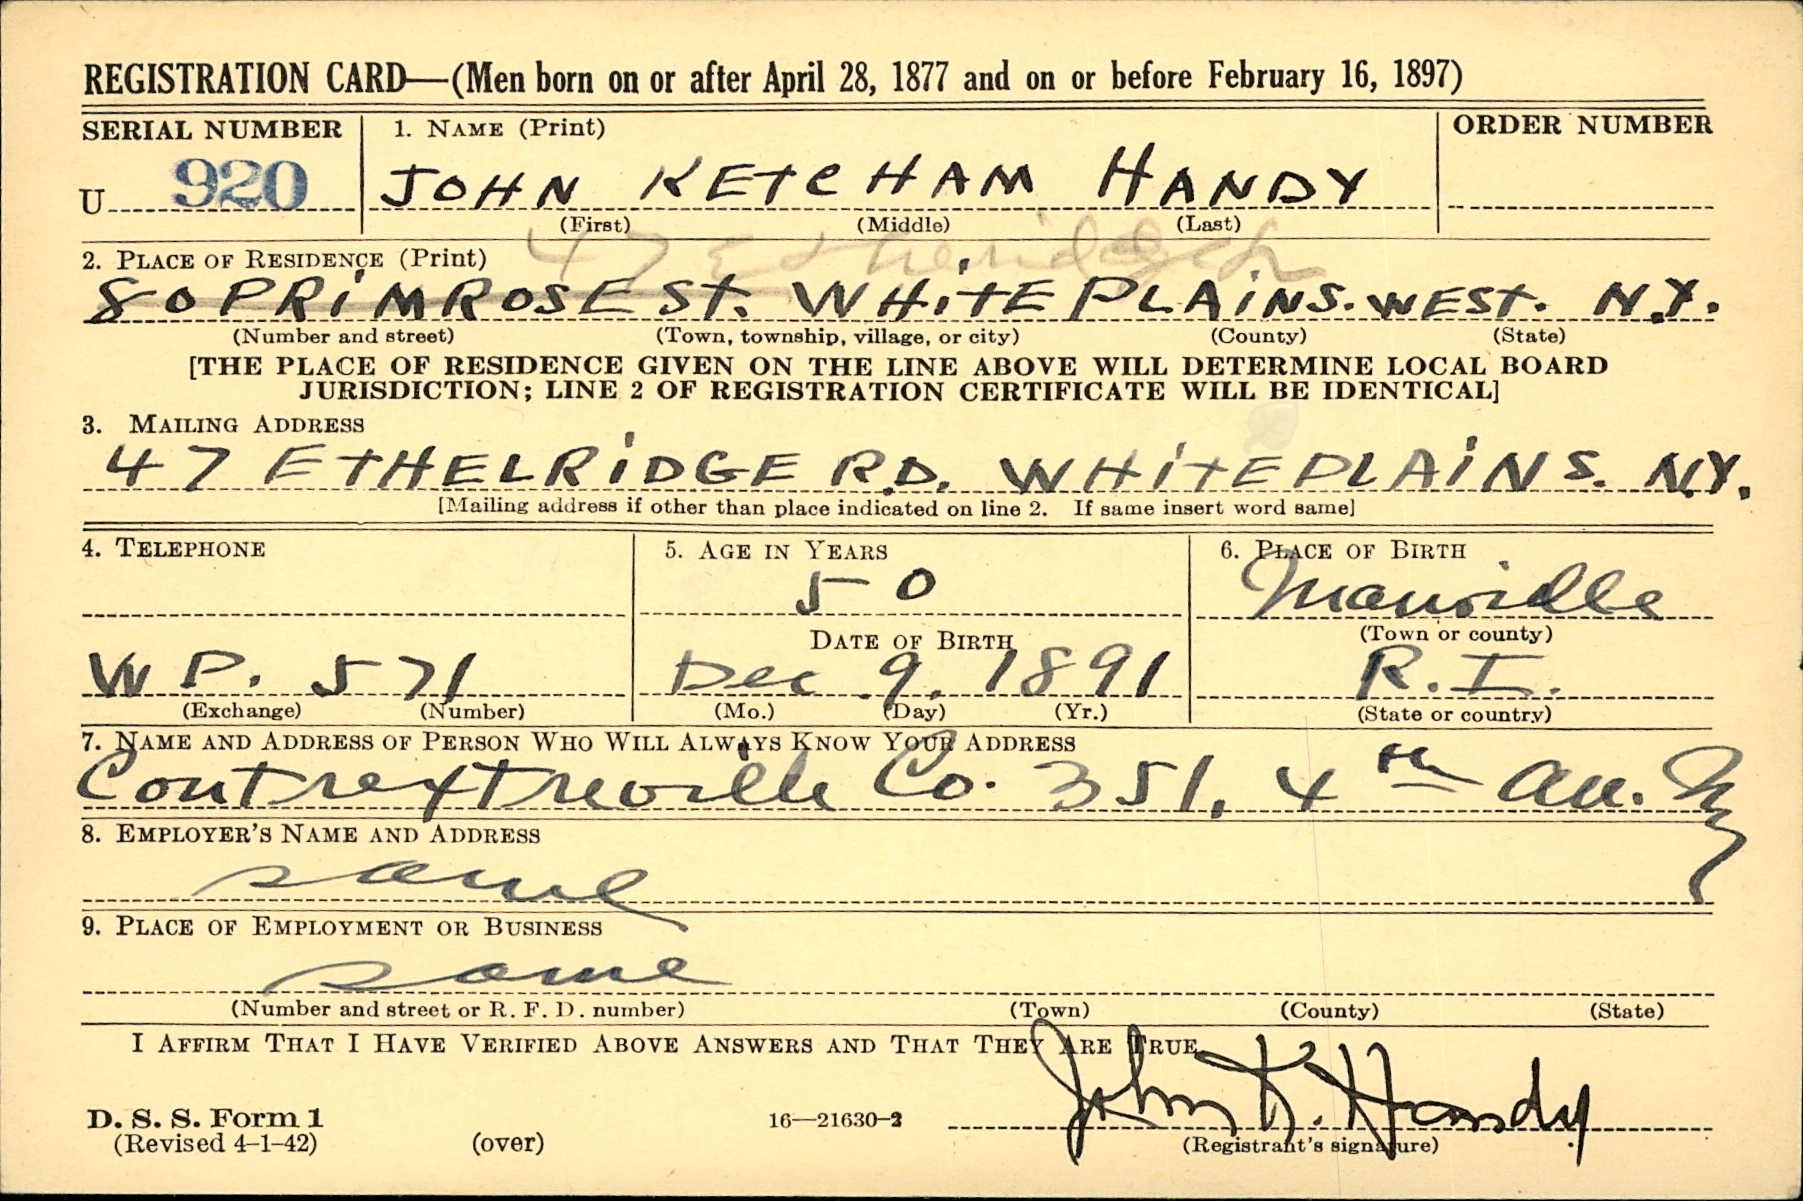 REGISTRATION CARD—(Men born on or after April 28, 1877 and on or before February 16, 1897)
SERIAL NUMBER
1. NAME (Print)
ORDER NUMBER
U 920
JOHN KETCHAM HANDY
(First) (Middle) (Last)
47 Ethelridge
2. PLACE OF RESIDENCE (Print)
80 PRiMROSE St. WHitE PLAiNS. WESt. N.Y.
(Number and street) (Town, township, village, or city) (County) (State)
[THE PLACE OF RESIDENCE GIVEN ON THE LINE ABOVE WILL DETERMINE LOCAL BOARD
JURISDICTION; LINE 2 OF REGISTRATION CERTIFICATE WILL BE IDENTICAL]
3. MAILING ADDRESS
47 EtHELRiDGE RD. WHitE PLAiNS. N.Y.
[Mailing address if other than place indicated on line 2. If same insert word same]
4. TELEPHONE
5. AGE IN YEARS
6. PLACE OF BIRTH
50
Manville
(Town or county)
DATE OF BIRTH
W P. 571
Dec 9, 1891
R. I.
(Exchange) (Number)
(Mo.) (Day) (Yr.)
(State or country)
7. NAME AND ADDRESS OF PERSON WHO WILL ALWAYS KNOW YOUR ADDRESS
Contrextreville Co. 351, 4th Ave. Ny
8. EMPLOYER'S NAME AND ADDRESS
same
9. PLACE OF EMPLOYMENT OR BUSINESS
same
(Number and street or R. F. D. number) (Town) (County) (State)
I AFFIRM THAT I HAVE VERIFIED ABOVE ANSWERS AND THAT THEY ARE TRUE.
John K. Handy
D. S. S. Form 1
(Revised 4-1-42)
(over)
16—21630-2
(Registrant's signature)